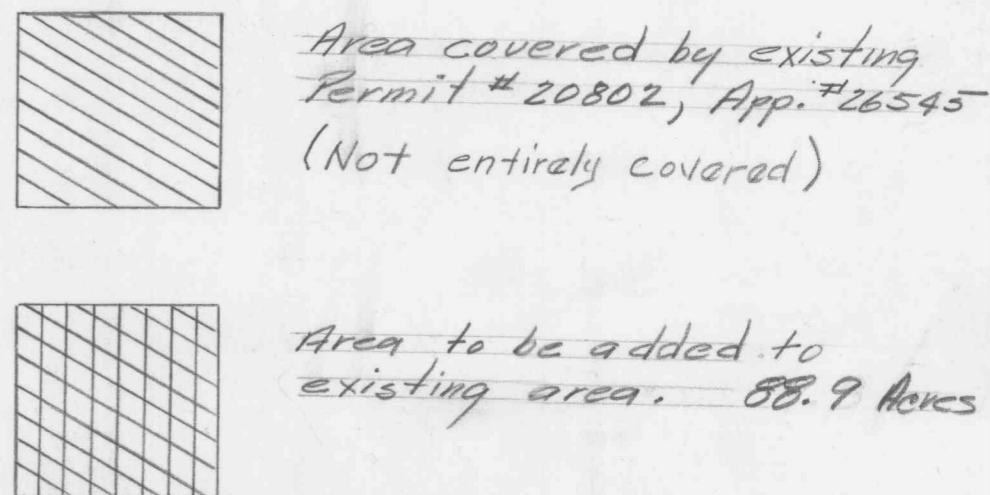 Area covered by existing
Permit # 20802, App. #26545
(Not entirely covered)
Area to be added to
existing area. 88.9 Acres